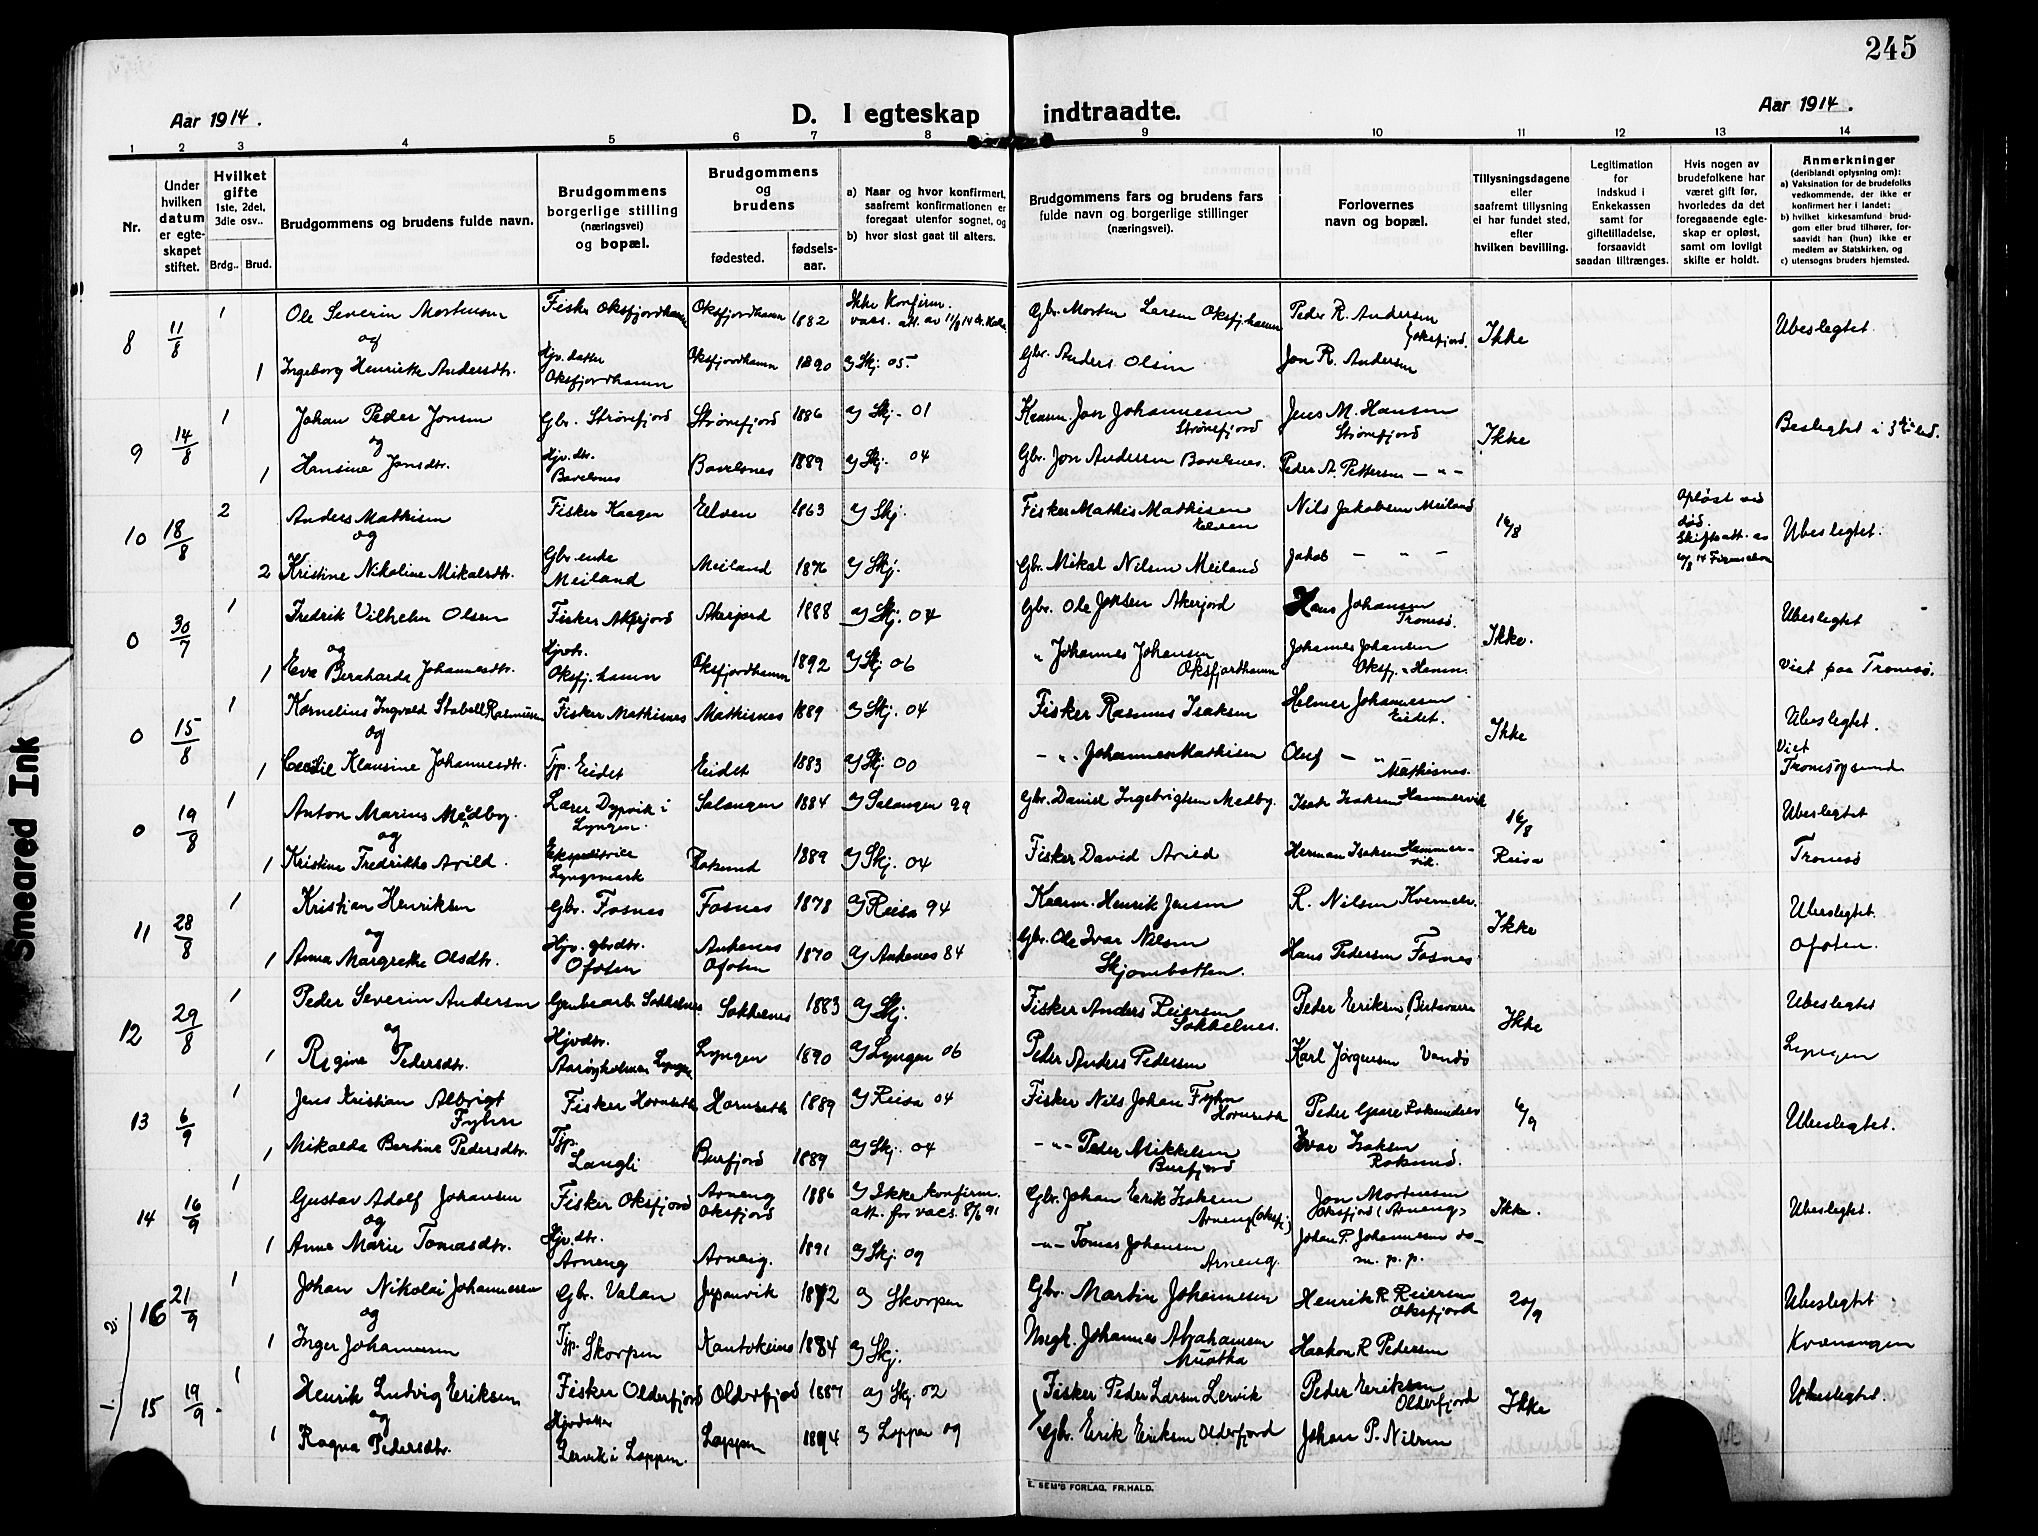 245
Aar 1914.
D. I egteskap indtraadte.
Aar 1914.
1 2 3 4 5 6 7 8 9 10 11 12 13 14
Nr.
Under hvilken datum er egteskapet stiftet.
Hvilket gifte 1ste, 2det, 3die osv..
Brdg.. Brud.
Brudgommens og brudens fulde navn.
Brudgommens borgerlige stilling (næringsvei) og bopæl.
Brudgommens og brudens
fødested.
fødselsaar.
a) Naar og hvor konfirmert, saafremt konfirmationen er foregaat utenfor sognet, og
b) hvor sidst gaat til alters.
Brudgommens fars og brudens fars fulde navn og borgerlige stillinger (næringsvei).
Forlovernes navn og bopæl.
Tillysningsdagene eller saafremt tillysning ei har fundet sted, efter hvilken bevilling.
Legitimation for Indskud i Enkekassen samt for giftetilladelse, forsaavidt saadan tiltrænges.
Hvis nogen av brudefolkene har været gift før, hvorledes da det foregaaende egteskap er opløst, samt om lovligt skifte er holdt.
Anmerkninger (deriblandt oplysning om):
a) Vaksination for de brudefolks vedkommende, der ikke er konfirmert her i landet;
b) hvilket kirkesamfund brudgom eller brud tilhører, forsaavidt han (hun) ikke er medlem av Statskirken, og
c) utensogns bruders hjemsted.
8 11/8 1 Ole Severin Mortensen Fisker Oksfjordhamn Oksfjordhamn 1882 Ikke konfirm. Gbr. Morten Larsen Oksfj.hamn Peder R. Andersen Oksfjord. Ikke Ubeslegtet
og
1 Ingeborg Henrikke Andersdtr. Hjv. datter Oksfjordhamn Oksfjordhamn 1890 a) Skj. 05 Gbr. Anders Olsen Jon R. Andersen
9 14/8 1 Johan Peder Jonsen Gbr. Strømfjord Strømfjord 1886 a) Skj. 01 Kaarm. Jon Johannesen Strømfjord Jens M. Hansen Strømfjord Ikke Beslegtet i 3die led.
og
1 Hansine Jonsdtr. Hjv. dtr. Bavelsnes Bavelsnes 1889 a) Skj. 04 Gbr. Jon Andersen Bavelsnes. Peder A. Pettersen — " —
10 18/8 2 Anders Mathisen Fisker Kaagen Elven 1863 a) Skj. Fisker Mathis Mathisen Elven Nils Jakobsen Meiland 16/8 Opløst ved død. Skifteatt. av Ubeslegtet.
og
2 Kristine Nikoline Mikalsdtr. Gbr. enke Meiland Meiland 1876 a) Skj. Gbr. Mikal Nilsen Meiland Jakob — " —
0 30/7 1 Fredrik Vilhelm Olsen Fisker Akerjord Akerjord 1888 a) Skj. 04 Gbr. Ole Jonsen Akerjord Hans Johansen Tromsø. Ikke. Ubeslegtet
og
1 Eva Bernharda Johannesdtr. Hjvdtr. Oksfj.hamn Oksfjordhamn 1892 a) Skj 06 " Johannes Johansen Oksfjordhamn Johannes Johansen Oksfj.-Hamn. Viet paa Tromsø.
0 15/8 1 Kornelius Ingvald Stabell Rasmusen Fisker Mathisnes Mathisnes 1889 a) Skj. 04 Fisker Rasmus Isaksen Helmer Johannesen Eidet. Ikke Ubeslegtet.
og
1 Cecelie Klausine Johannesdtr. Tjp. Eidet Eidet 1883 a) Skj 00 — " — Johannes Mathisen Oluf — " Mathisnes. Viet Tromsøysund
0 19/8 1 Anton Marius Medby. Lærer Dypvik i Lyngen. Salangen 1884 a) Salangen 99 Gbr. Daniel Ingebrigtsen Medby. Isak Isaksen Hammervik 16/8 Ubeslegtet
og
1 Kristine Fredrikke Avild. Lyngsmark Roksund 1889 a) Skj. 04 Fisker David Avild Herman Isaksen Hammervik. Reisa Tromsø
11 28/8 1 Kristian Henriksen Gbr. Fosnes Fosnes 1878 a) Reisa 94 Kaarm. Henrik Jensen R. Nilsen Ikke Ubeslegtet.
og
1 Anna Margrethe Olsdtr. Hjv. gbrdtr. Ofoten Ankenes Ofoten 1870 a) Ankenes 84 Gbr. Ole Ivar Nilsen Skjombotten. Hans Pedersen Fosnes Ofoten.
12 29/8 1 Peder Severin Andersen Grubearb. Sokkelnes Sokkelnes 1883 a) Skj. Fisker Anders Reiersen Sokkelnes. Peder Eriksen, Birtavarre Ikke Ubeslegtet
og
1 Regine Pedersdtr. Hjvdtr. Aarøyholmen Lyngen Lyngen 1890 a) Lyngen 06 Peder Anders Pedersen Karl Jørgensen Vandø Lyngen
13 6/9 1 Jens Kristian Albrigt Fyhn Fisker Hornseth Hornseth 1889 a) Reisa 04 Fisker Nils Johan Fyhn Hornseth Peder Gaare Roksundnes 6/9 Ubeslegtet.
1 Mikalda Bertine Pedersdtr. Tjp. Langli Burfjord 1889 a) Skj. 04 — " — Peder Mikkelsen Burfjord Ivar Isaksen Roksund.
14 16/9 1 Gustav Adolf Johansen Fisker Oksfjord Arneng Oksfjord 1886 a) Ikke konfirm. att. for vacs. 8/6 91 Gbr. Johan Erik Isaksen Arneng (Oksfj.) Jon Mortensen Oksfjord (Arneng) Ikke. Ubeslegtet.
og
1 Anne Marie Tomasdtr. Hjv. dtr. Arneng Arneng. 1891 a) Skj 09 — " — Tomas Johansen Arneng. Johan P. Johannesen do — m. p. p.
2. 16 21/9 1 Johan Nikolai Johannesen Gbr. Valan Jøpanvik 1872 a) Skorpen Gbr. Martin Johannesen Henrik R. Reiersen Oksfjord 20/9 Ubeslegtet
og
1 Inger Johannesen Tjp. Skorpen Kautokeino 1884 a) Skj. Ungk. Johannes Abrahamsen Muotka Haakon R Pedersen Kvænangen
1. 15 19/9 1 Henrik Ludvig Eriksen Fisker Olderfjord Olderfjord 1887 a) Skj 02 Fisker Peder Larsen Lervik Peder Eriksen Olderfjord Ikke Ubeslegtet.
og
1 Ragna Pedersdtr. Hjvdatter Lervik i Loppen. Loppen 1894 a) Loppen 09 Gbr. Erik Eriksen Olderfjord Johan P. Nilsen
E. SEM'S FORLAG, FR.HALD.
Smeared Ink